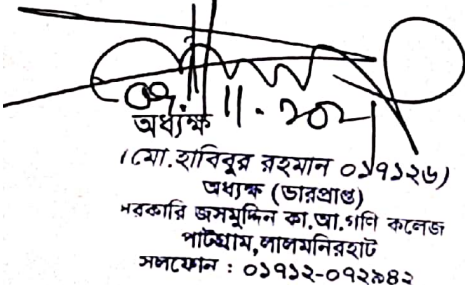 ০৭.11.২০২১
অধ্যক্ষ
(মো.হাবিবুর রহমান ০১৭১২৬)
অধ্যক্ষ (ভারপ্রাপ্ত)
সরকারি জসমুদ্দিন কা.আ.গণি কলেজ
পাটগ্রাম,লালমনিরহাট
সলফোন : ০১৭১২-০৭২৯৪২